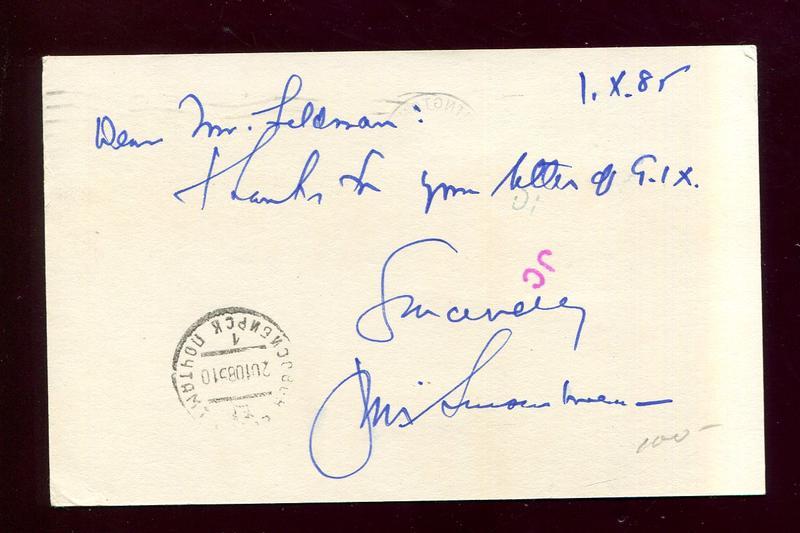 1. X. 85
Dear Mr. Feldman:
Thanks for your letter of 9. IX.
Sincerely
НОВОСИБИРСК ПОЧТАМТ
1
201085 10
100-